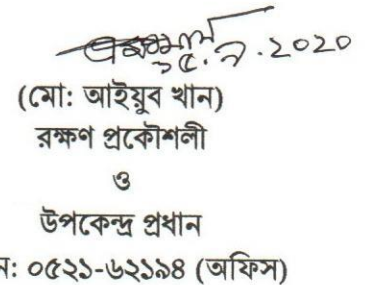 ১৫.৯.2020
(মো: আইয়ুব খান)
রক্ষণ প্রকৌশলী
ও
উপকেন্দ্র প্রধান
ন: ০৫২১-৬২১৯৪ (অফিস)